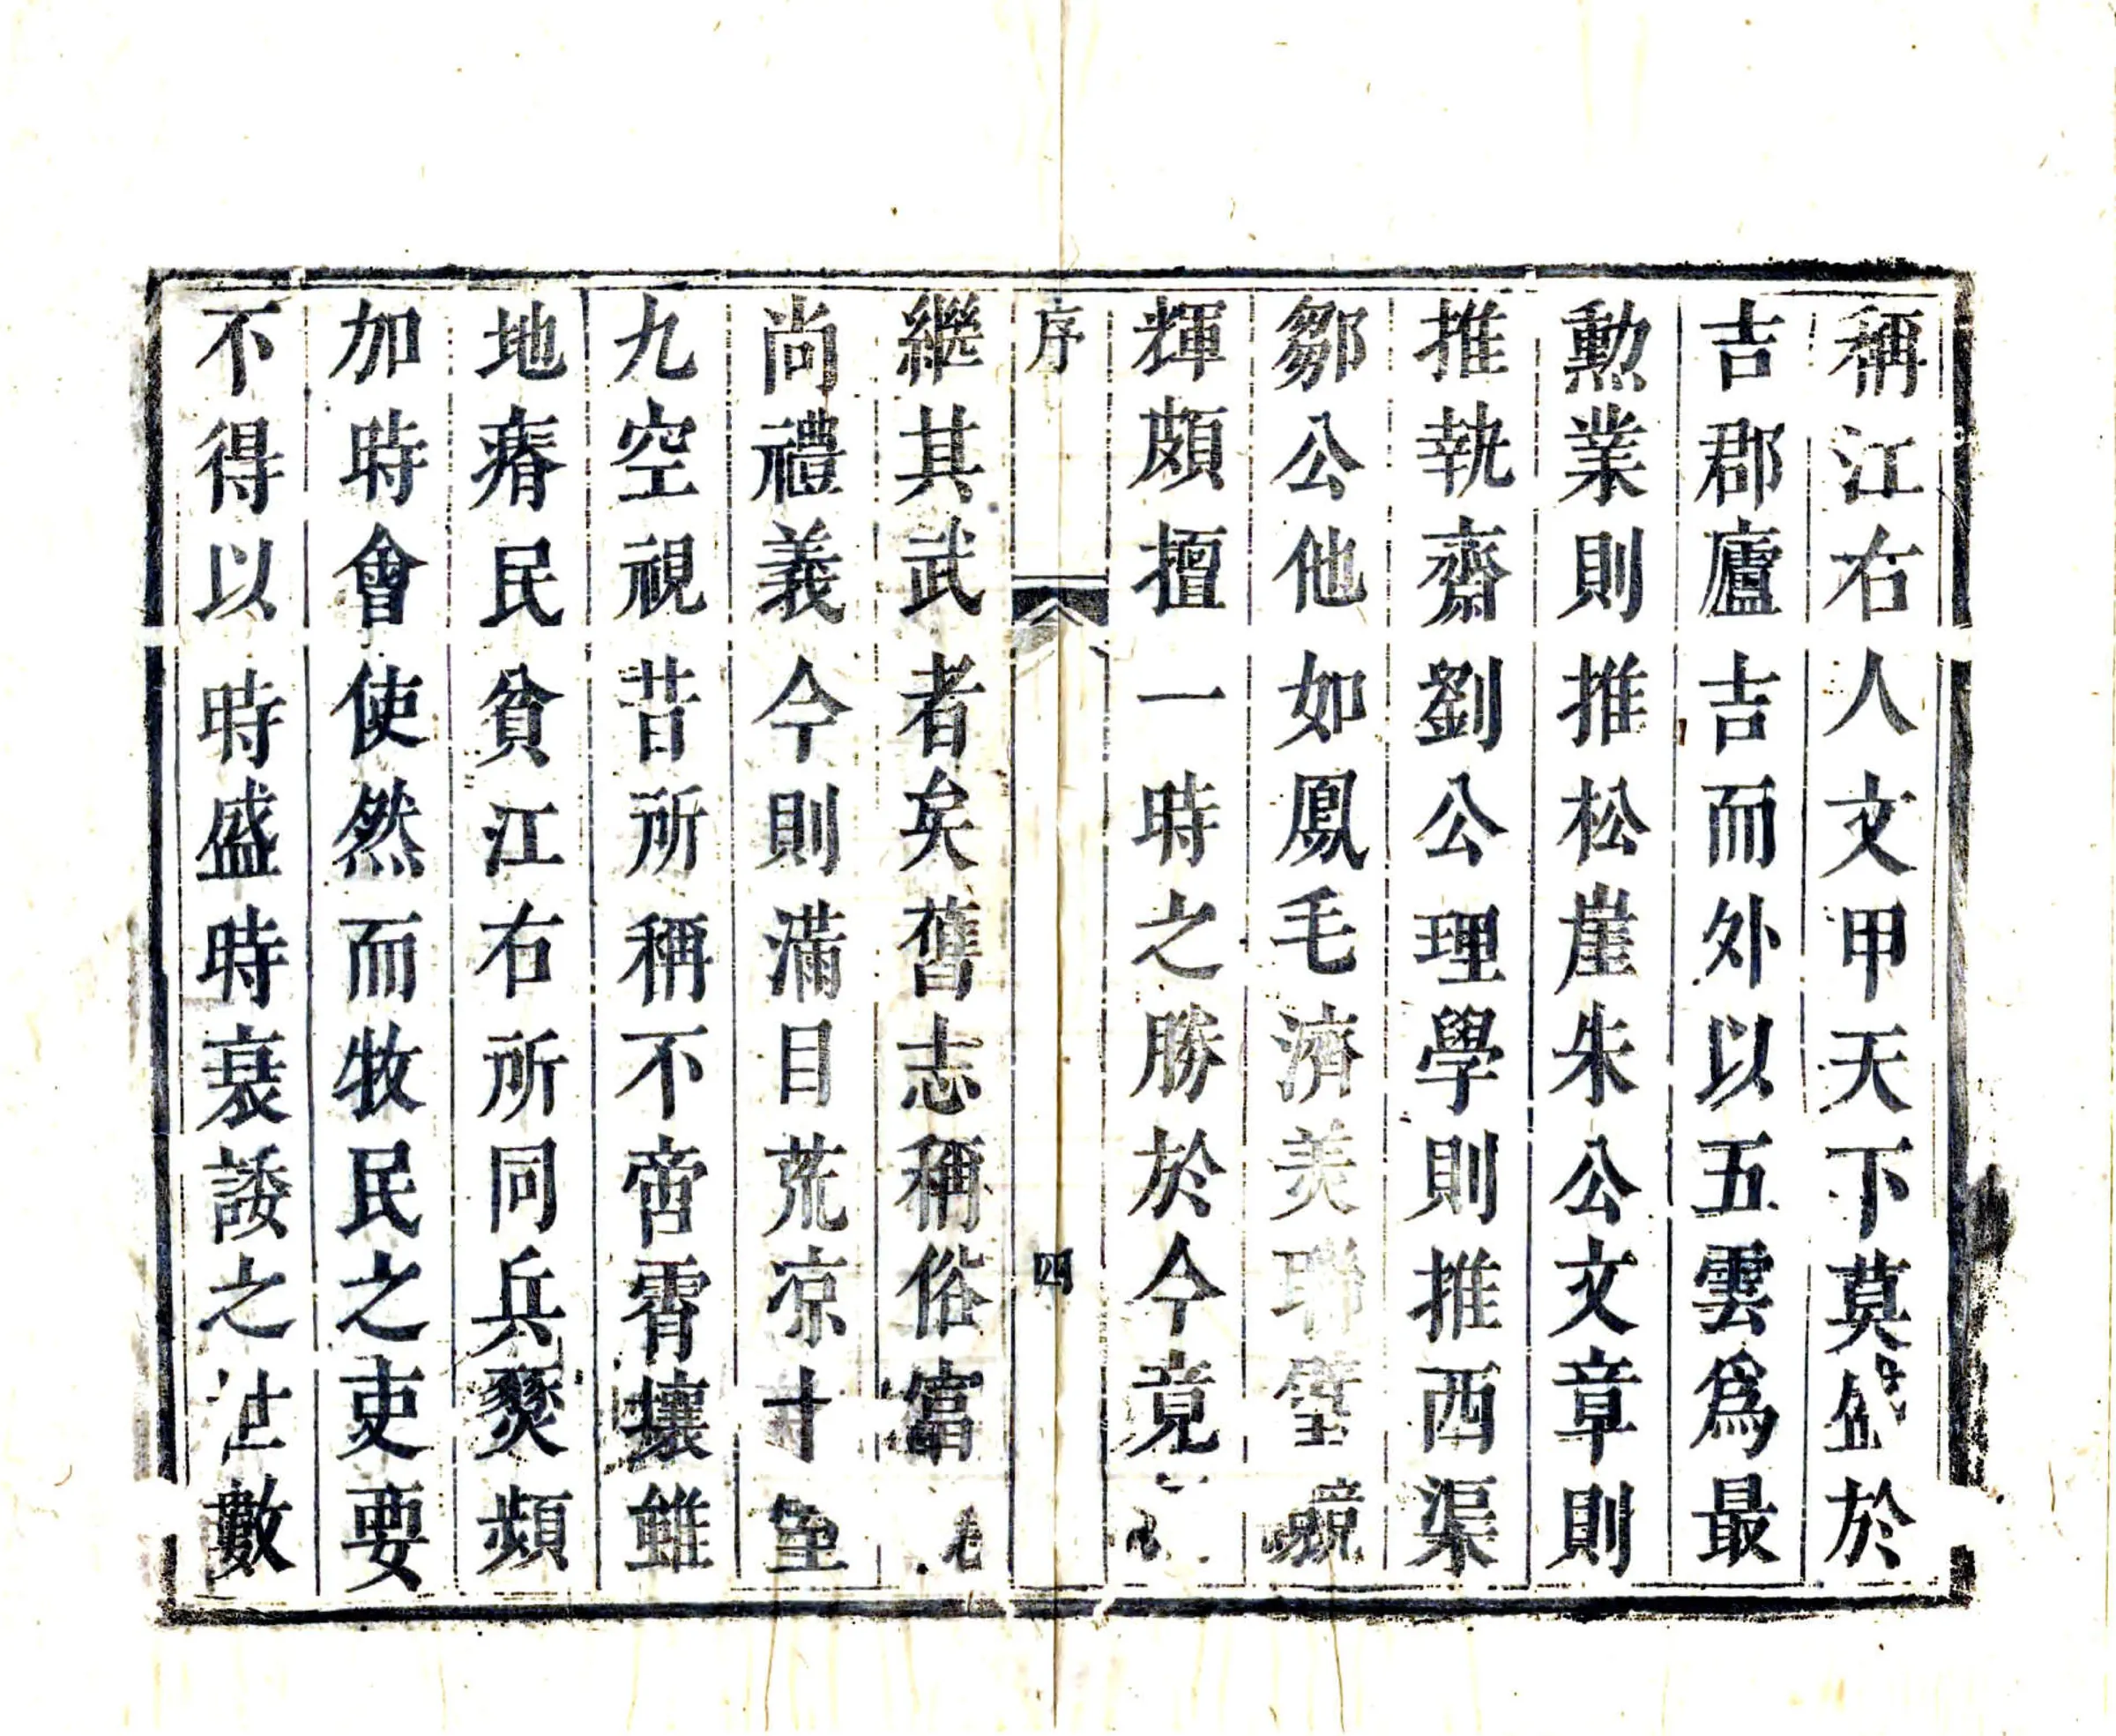 稱江右人文甲天下莫盛於
吉郡廬吉而外以五雲爲最
勲業則推松崖朱公文章則
推執齋劉公理學則推西渠
鄒公他如鳳毛濟美聯璧競
輝頗擅一時之勝於今竟
序
四
繼其武者矣舊志稱俗富
尚禮義今則滿目荒凉十室
九空視昔所稱不啻霄壤雖
地瘠民貧江右所同兵燹頻
加時會使然而牧民之吏要
不得以時盛時衰諉之世數